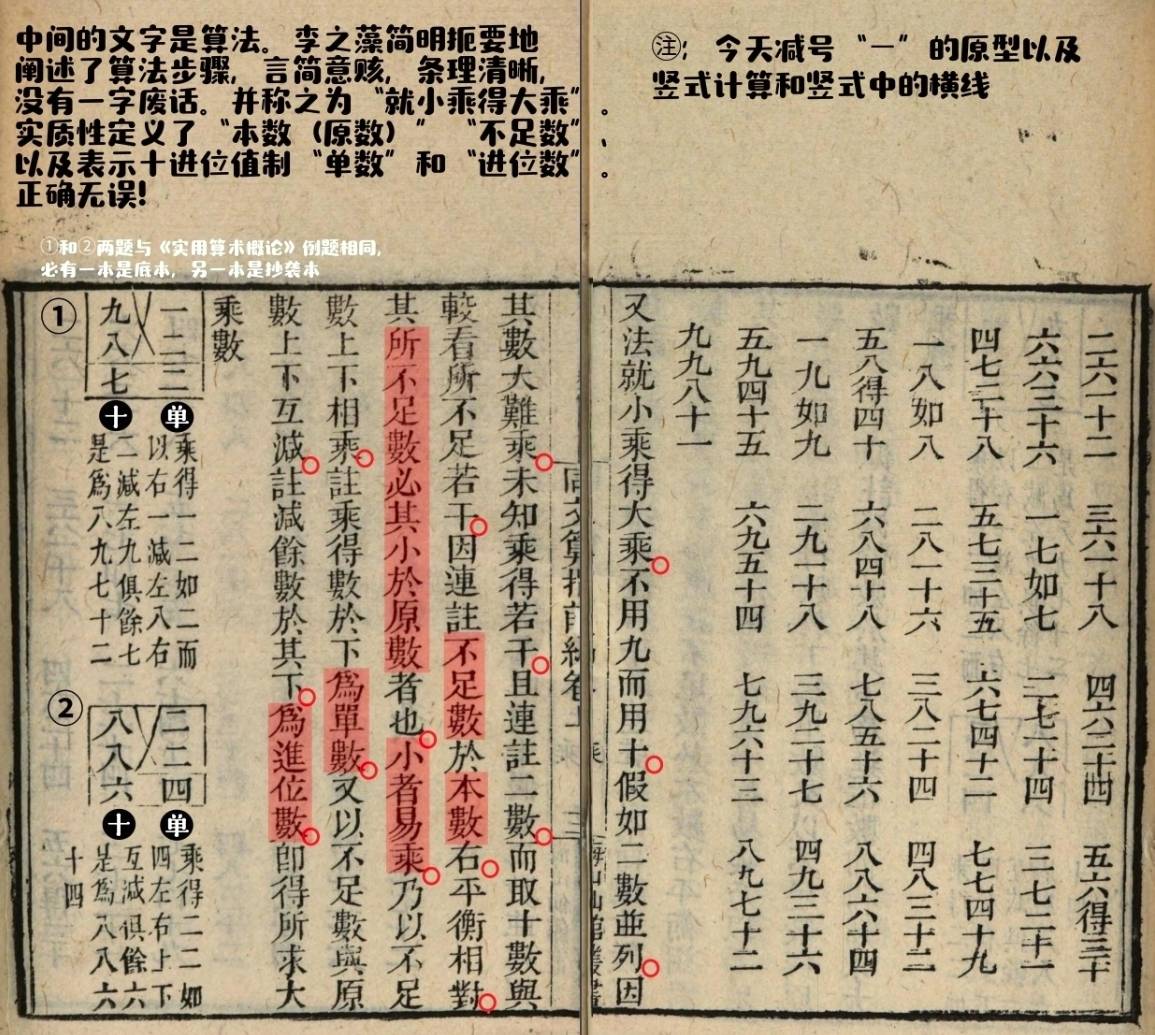 中间的文字是算法。李之藻简明扼要地
阐述了算法步骤，言简意赅，条理清晰，
没有一字废话。并称之为“就小乘得大乘”。
实质性定义了“本数（原数）”“不足数”、
以及表示十进位值制“单数”和“进位数”。
正确无误!
注：今天减号“一”的原型以及
竖式计算和竖式中的横线
①和②两题与《实用算术概论》例题相同，
必有一本是底本，另一本是抄袭本
二六一十二 三六一十八 四六二十四 五六得三十
六六三十六 一七如七 二七一十四 三七二十一
四七二十八 五七三十五 六七四十二 七七四十九
一八如八 二八一十六 三八二十四 四八三十二
五八得四十 六八四十八 七八五十六 八八六十四
一九如九 二九一十八 三九二十七 四九三十六
五九四十五 六九五十四 七九六十三 八九七十二
九九八十一
又法就小乘得大乘不用九而用十假如二數並列因
同文算指前編卷上 乘 三 海山仙館叢書
其數大難乘未知乘得若干且連註二數而取十數與
較看所不足若干因連註不足數於本數右平衡相對
其所不足數必其小於原數者也小者易乘乃以不足
數上下相乘註乘得數於下為單數又以不足數與原
數上下互減註減餘數於其下為進位數即得所求大
乘數
①
九 一
八 二
七 二
十 单
乘得一二如二而
以右一減左八右
二減左九俱餘七
是為八九七十二
②
八 二
八 二
六 四
十 单
乘得二二如
四左右上下
互減俱餘六
是為八八六
十四